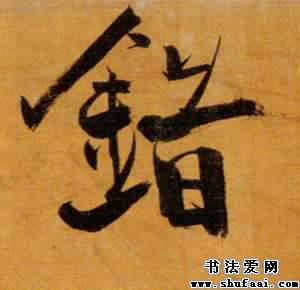 錯
书法爱网
www.shufaai.com